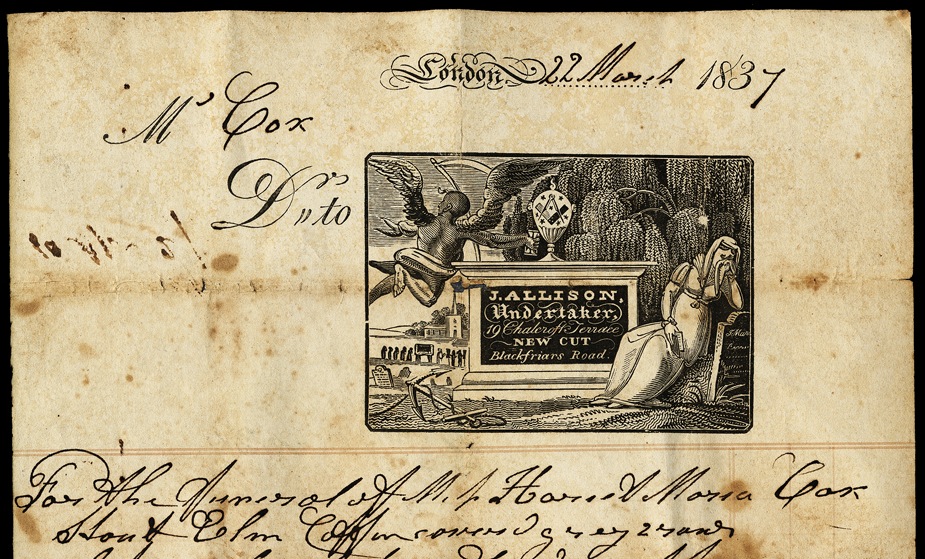 London 22 March 1837
Mr Cox
Dr to
J. ALLISON,
Undertaker,
19 Chalcroft Terrace
NEW CUT
Blackfriars Road.
For the funeral of Harriet Maria Cox
Stout Elm Coffin covered grey